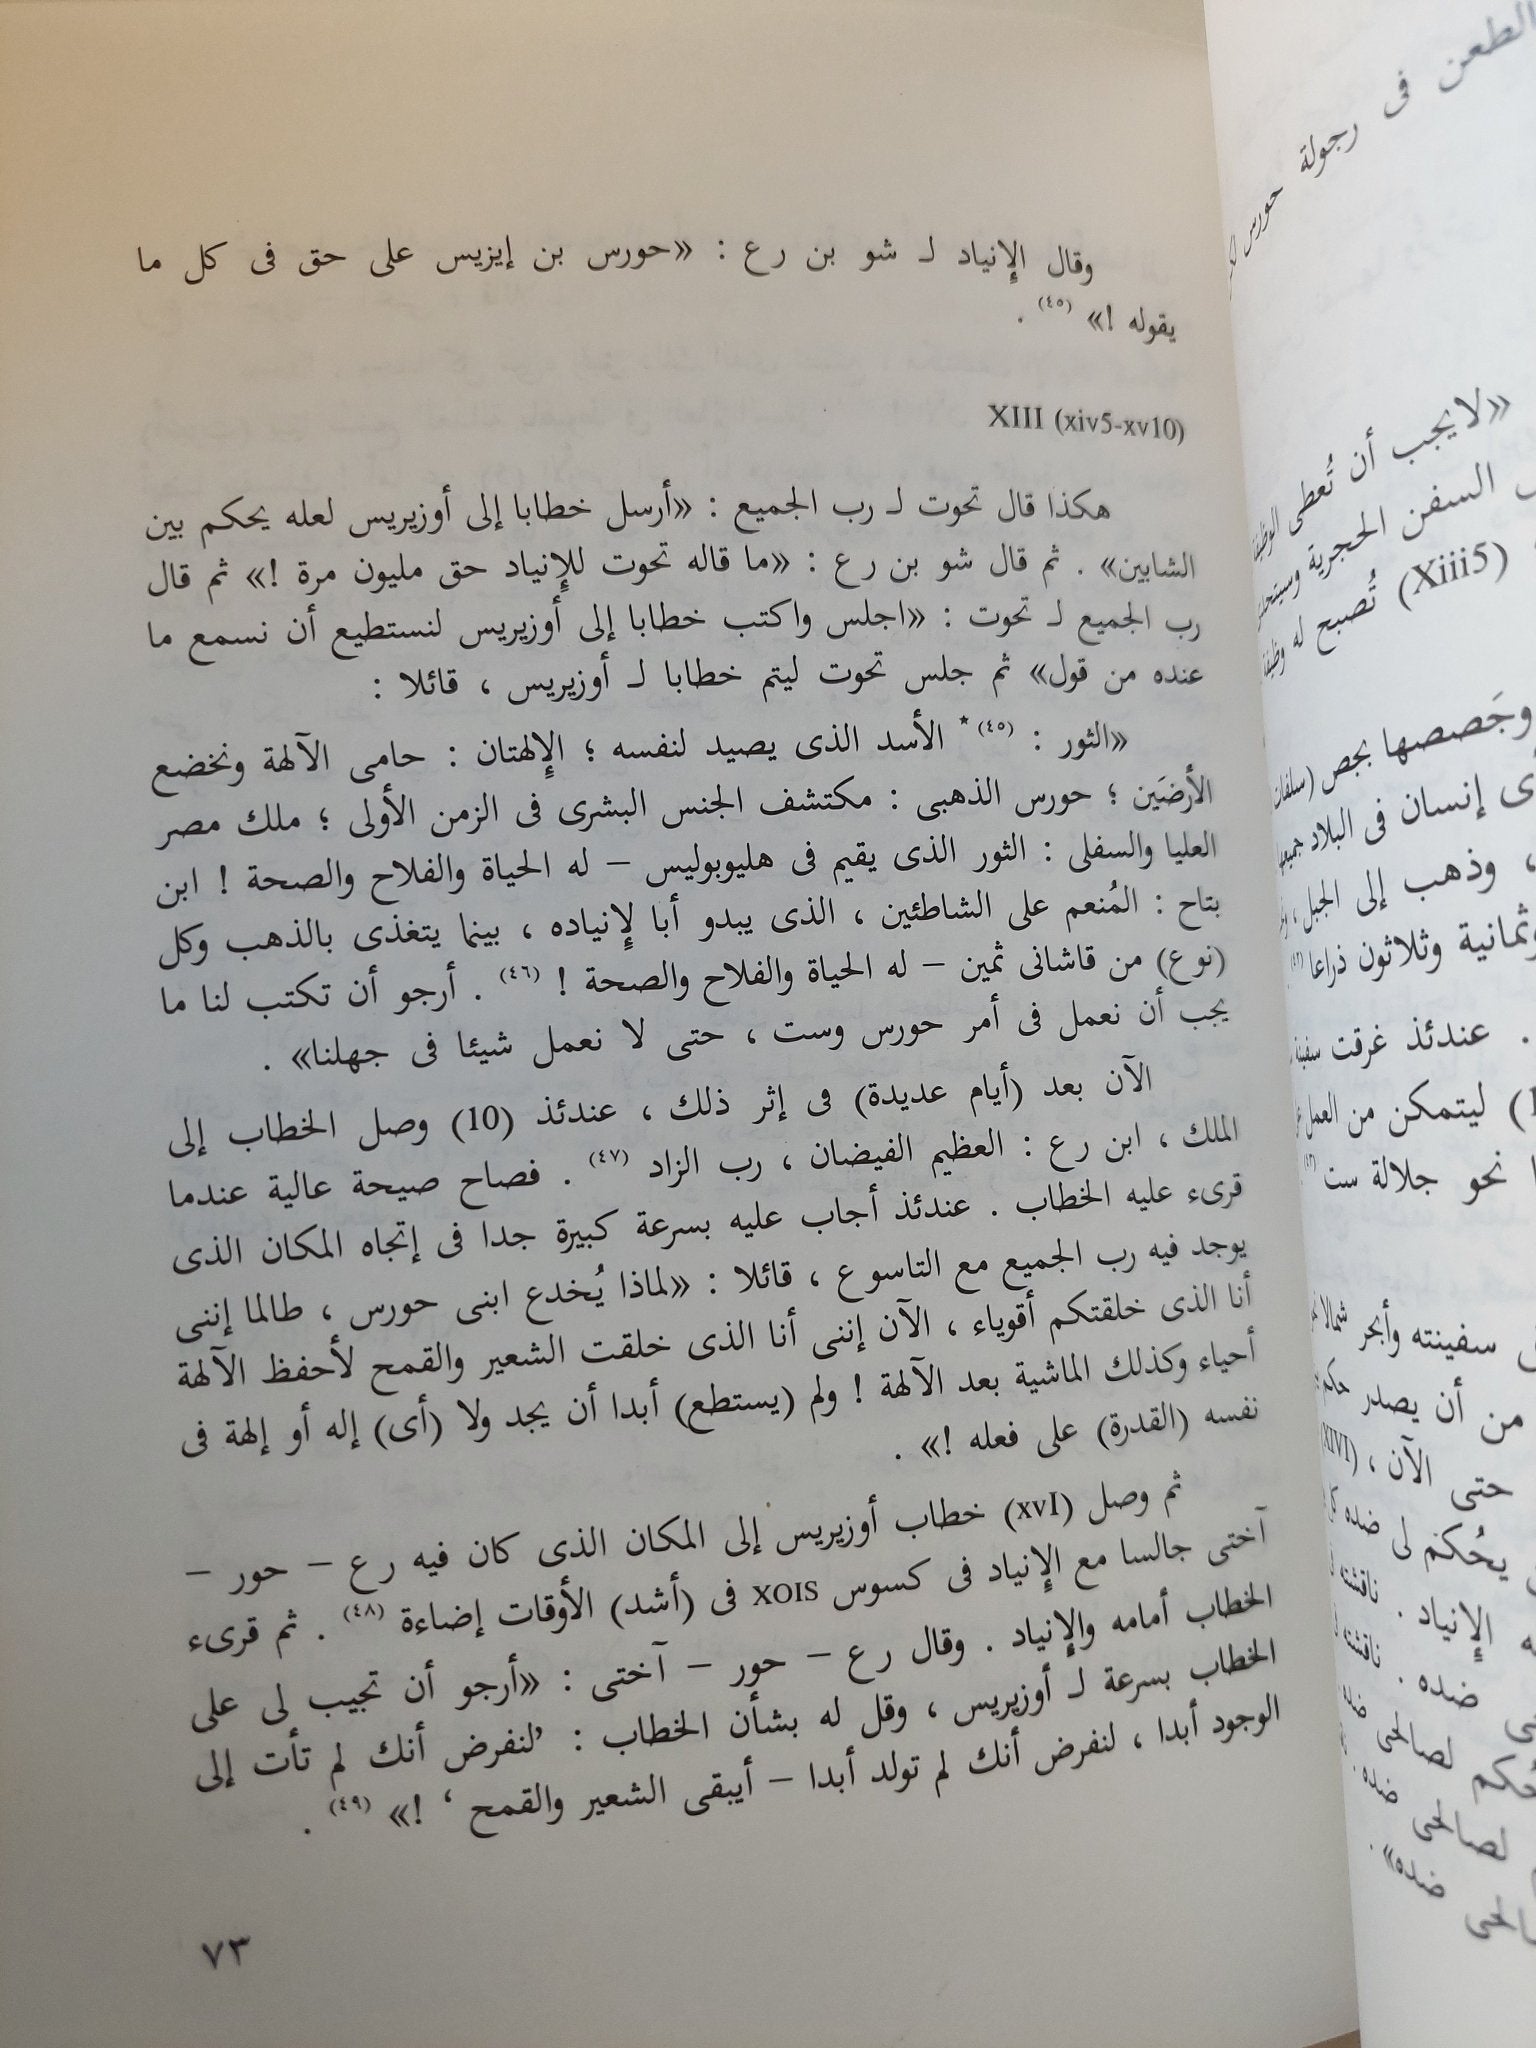 وقال الإنياد لـ شو بن رع : «حورس بن إيزيس على حق فى كل ما
يقوله !» (٤٥) .
XIII (xiv5-xv10)
هكذا قال تحوت لـ رب الجميع : «أرسل خطابا إلى أوزيريس لعله يحكم بين
الشابين» . ثم قال شو بن رع : «ما قاله تحوت للإنياد حق مليون مرة !» ثم قال
رب الجميع لـ تحوت : «اجلس واكتب خطابا إلى أوزيريس لنستطيع أن نسمع ما
عنده من قول» ثم جلس تحوت ليتم خطابا لـ أوزيريس ، قائلا :
«الثور : (٤٥)* الأسد الذى يصيد لنفسه ؛ الإلهتان : حامى الآلهة ونخضع
الأرضَين ؛ حورس الذهبى : مكتشف الجنس البشرى فى الزمن الأولى ؛ ملك مصر
العليا والسفلى : الثور الذى يقيم فى هليوبوليس – له الحياة والفلاح والصحة ! ابن
بتاح : المُنعم على الشاطئين ، الذى يبدو أبا لإنياده ، بينما يتغذى بالذهب وكل
(نوع) من قاشانى ثمين – له الحياة والفلاح والصحة ! (٤٦) . أرجو أن تكتب لنا ما
يجب أن نعمل فى أمر حورس وست ، حتى لا نعمل شيئا فى جهلنا» .
الآن بعد (أيام عديدة) فى إثر ذلك ، عندئذ (10) وصل الخطاب إلى
الملك ، ابن رع : العظيم الفيضان ، رب الزاد (٤٧) . فصاح صيحة عالية عندما
قرىء عليه الخطاب . عندئذ أجاب عليه بسرعة كبيرة جدا فى إتجاه المكان الذى
يوجد فيه رب الجميع مع التاسوع ، قائلا : «لماذا يُخدع ابنى حورس ، طالما إننى
أنا الذى خلقتكم أقوياء ، الآن إننى أنا الذى خلقت الشعير والقمح لأحفظ الآلهة
أحياء وكذلك الماشية بعد الآلهة ! ولم (يستطع) أبدا أن يجد ولا (أى) إله أو إلهة فى
نفسه (القدرة) على فعله !» .
ثم وصل (xvI) خطاب أوزيريس إلى المكان الذى كان فيه رع – حور –
آختى جالسا مع الإنياد فى كسوس XOIS فى (أشد) الأوقات إضاءة (٤٨) . ثم قرىء
الخطاب أمامه والإنياد . وقال رع – حور – آختى : «أرجو أن تجيب لى على
الخطاب بسرعة لـ أوزيريس ، وقل له بشأن الخطاب : ’لنفرض أنك لم تأت إلى
الوجود أبدا ، لنفرض أنك لم تولد أبدا – أيبقى الشعير والقمح ‘ !» (٤٩) .
٧٣
الطعن فى رجولة حورس
«لا يجب أن تُعطى الوظيفة
السفن الحجرية
(Xiii5) تُصبح له وظيفة
وجَصصها بجص
إنسان فى البلاد جميعها
، وذهب إلى الجبل ،
وثمانية وثلاثون ذراعا
. عندئذ غرقت سفينة
ليتمكن من العمل
نحو جلالة ست
سفينته وأبحر شمالا
من أن يصدر حكم
حتى الآن ، (XIVI)
يحُكم لى ضده
الإنياد . ناقشته
ضده . ناقشته
لصالحى ضده
لصالحى ضده .
ضده» .